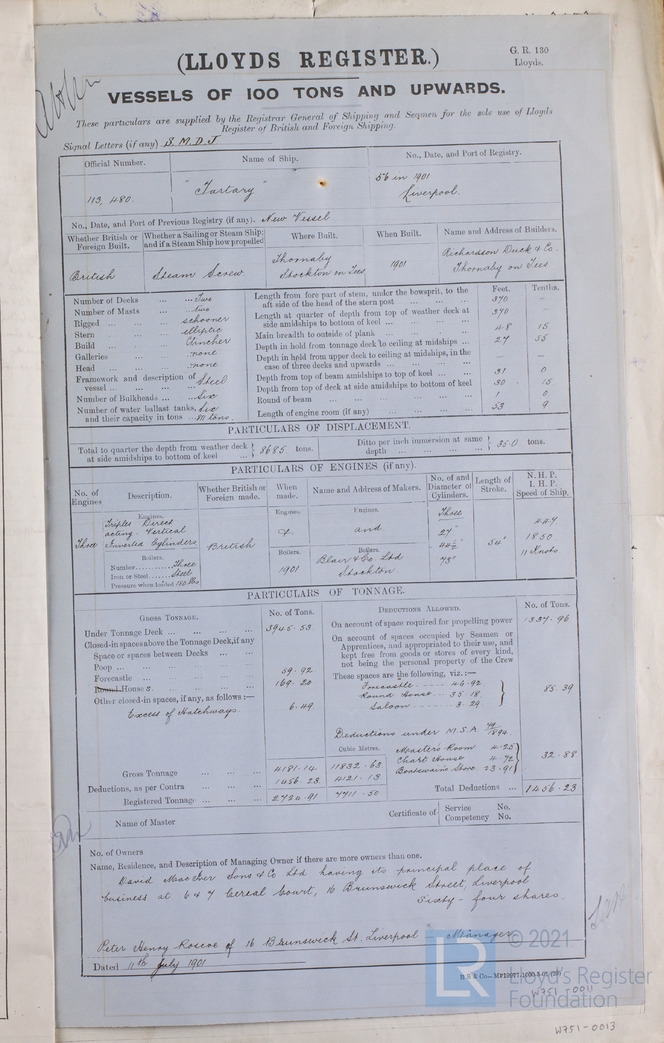 (LLOYDS REGISTER.)
G. R. 130
Lloyds.
VESSELS OF 100 TONS AND UPWARDS.
These particulars are supplied by the Registrar General of Shipping and Seamen for the sole use of Lloyds
Register of British and Foreign Shipping.
Signal Letters (if any) S. M. D. J
Official Number. Name of Ship. No., Date, and Port of Registry.
113,480. "Tartary" 56 in 1901
Liverpool.
No., Date, and Port of Previous Registry (if any). New Vessel
Whether British or Foreign Built. Whether a Sailing or Steam Ship; and if a Steam Ship how propelled Where Built. When Built. Name and Address of Builders.
British Steam Screw. Thornaby Stockton on Tees 1901 Richardson Duck & Co. Thornaby on Tees
Number of Decks ... ... Two
Number of Masts ... ... two
Rigged ... ... schooner
Stern ... ... elliptic
Build ... ... Clincher
Galleries ... ... none
Head ... ... none
Framework and description of vessel ... Steel
Number of Bulkheads ... Six
Number of water ballast tanks, Six
and their capacity in tons ... tons.
Feet. Tenths.
Length from fore part of stem, under the bowsprit, to the
aft side of the head of the stern post ... 370 –
Length at quarter of depth from top of weather deck at
side amidships to bottom of keel ... 370 –
Main breadth to outside of plank ... 48 15
Depth in hold from tonnage deck to ceiling at midships ... 27 55
Depth in hold from upper deck to ceiling at midships, in the
case of three decks and upwards ... – –
Depth from top of beam amidships to top of keel ... 31 0
Depth from top of deck at side amidships to bottom of keel 30 15
Round of beam ... 1 0
Length of engine room (if any) ... 53 9
PARTICULARS OF DISPLACEMENT.
Total to quarter the depth from weather deck
at side amidships to bottom of keel ... 8685 tons.
Ditto per inch immersion at same
depth ... 35.0 tons.
PARTICULARS OF ENGINES (if any).
No. of Engines Description. Whether British or Foreign made. When made. Name and Address of Makers. No. of and Diameter of Cylinders. Length of Stroke. N. H. P. I. H. P. Speed of Ship.
Engines. Engines. Engines.
Three Triples Direct
acting Vertical
Inverted Cylinders
British & and Three
27"
54" 447
1850
11 Knots
Boilers. Boilers. Boilers.
Number............Three
Iron or Steel.......Steel
Pressure when loaded 180 lbs
1901 Blair & Co. Ltd
Stockton
PARTICULARS OF TONNAGE.
GROSS TONNAGE. No. of Tons. DEDUCTIONS ALLOWED. No. of Tons.
Under Tonnage Deck ... 3945.53
Closed-in spaces above the Tonnage Deck, if any
Space or spaces between Decks ...
Poop ...
Forecastle ... 59.92
Round House s ... 169.20
Other closed-in spaces, if any, as follows:—
Excess of Hatchways 6.49
On account of space required for propelling power 1337.96
On account of spaces occupied by Seamen or
Apprentices, and appropriated to their use, and
kept free from goods or stores of every kind,
not being the personal property of the Crew
These spaces are the following, viz.:—
Forecastle 46.92
Round House 35.18
Saloon 3.29
85.39
Deductions under M.S.A. 79/1894
Master's Room 4.25
Chart House 4.72
Boatswain's Store 23.91
32.88
Cubic Metres.
Gross Tonnage ... 4181.14 11832.63
Deductions, as per Contra ... 1456.23 4121.13
Registered Tonnage ... 2724.91 7711.50
Total Deductions ... 1456.23
Name of Master
Certificate of Service No.
Competency No.
No. of Owners
Name, Residence, and Description of Managing Owner if there are more owners than one.
David MacIver Sons & Co Ltd having its principal place of
business at 6 & 7 Cereal Court, 16 Brunswick Street, Liverpool
Sixty-four shares.
Peter Henry Roscoe of 16 Brunswick St. Liverpool – Manager
Dated 11th July 1901
© 2021
LR
Lloyd's Register
Foundation
W751-0011
W751-0013